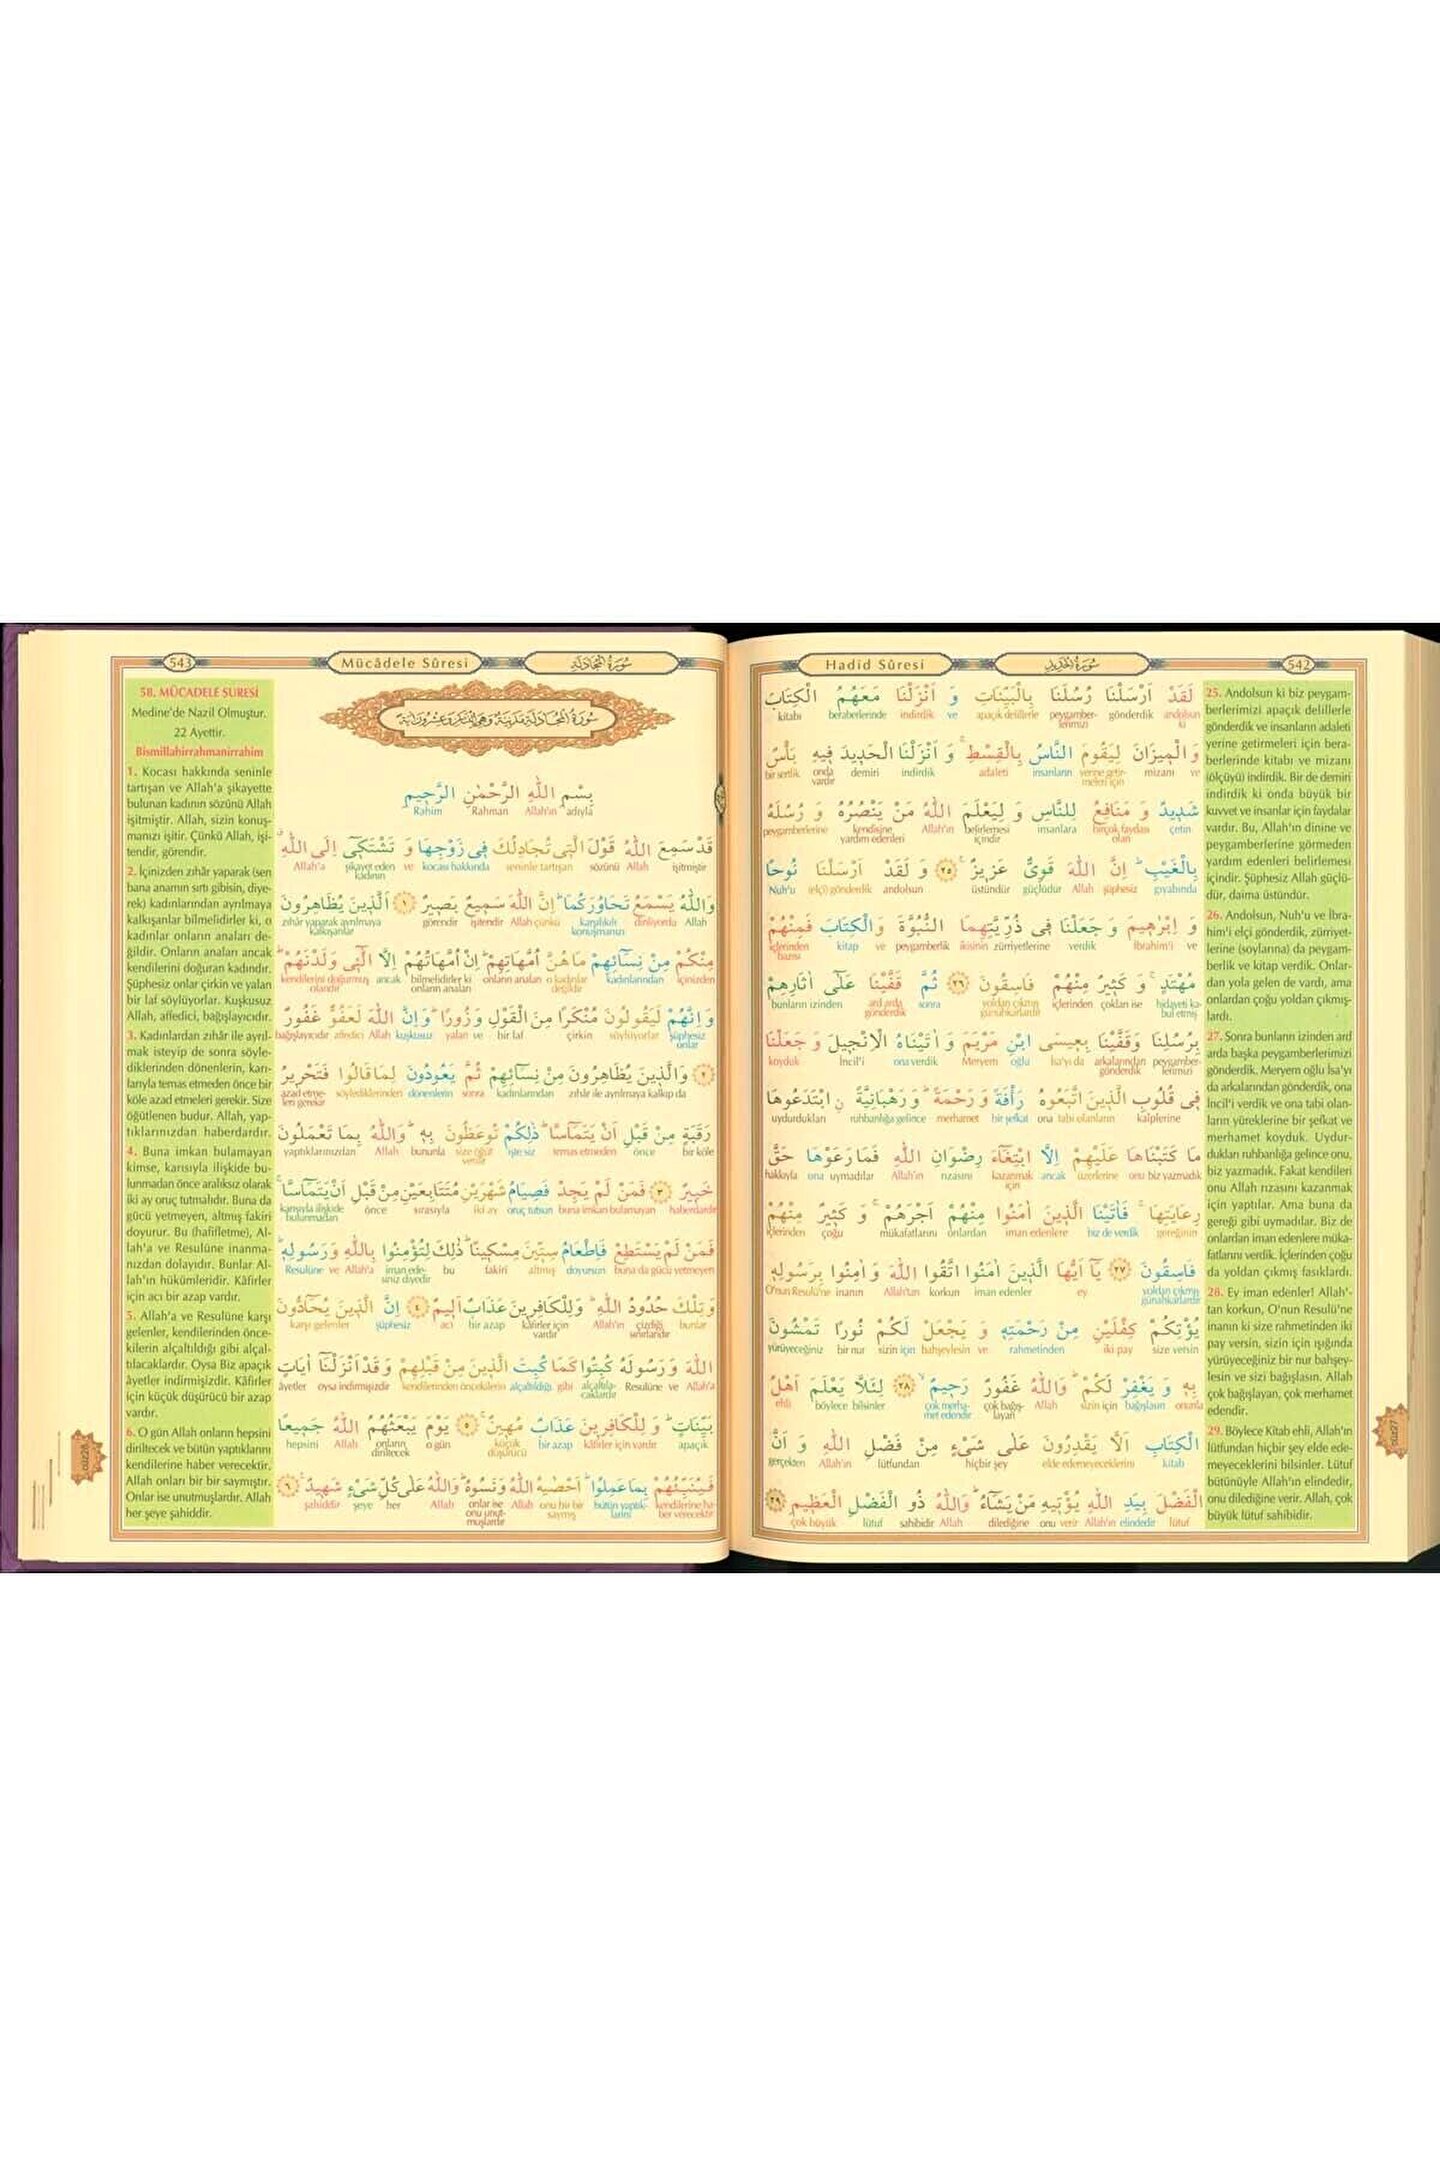 Hadid Sûresi
سُورَةُ الْحَدِيدِ
542
لَقَدْ اَرْسَلْنَا رُسُلَنَا بِالْبَيِّنَاتِ وَ اَنْزَلْنَا مَعَهُمُ الْكِتَابَ
kitabı beraberlerinde indirdik ve apaçık delillerle peygamberlerimizi gönderdik andolsun ki
وَ الْمِيزَانَ لِيَقُومَ النَّاسُ بِالْقِسْطِۚ وَ اَنْزَلْنَا الْحَدِيدَ فِيهِ بَأْسٌ
bir sertlik onda vardır demiri indirdik ve adaleti insanların yerine getirmeleri için mizanı ve
شَدِيدٌ وَ مَنَافِعُ لِلنَّاسِ وَ لِيَعْلَمَ اللّٰهُ مَنْ يَنْصُرُهُ وَ رُسُلَهُ
peygamberlerine kendisine yardım edenleri Allah'ın belirlemesi içindir insanlara birçok faydası olan çetin
بِالْغَيْبِۜ اِنَّ اللّٰهَ قَوِيٌّ عَزِيزٌ۟ ﴿٢٥﴾ وَ لَقَدْ اَرْسَلْنَا نُوحًا
Nuh'u (elçi) gönderdik andolsun üstündür güçlüdür Allah şüphesiz gıyabında
وَ اِبْرٰهِيمَ وَ جَعَلْنَا فِي ذُرِّيَّتِهِمَا النُّبُوَّةَ وَالْكِتَابَ فَمِنْهُمْ
içlerinden bazısı kitap ve peygamberlik ikisinin zürriyetlerine verdik İbrahim'i ve
مُهْتَدٍۚ وَ كَثِيرٌ مِنْهُمْ فَاسِقُونَ ﴿٢٦﴾ ثُمَّ قَفَّيْنَا عَلٰٓى اٰثَارِهِمْ
bunların izinden ard arda gönderdik sonra yoldan çıkmış günahkarlardır içlerinden çokları ise hidayeti kabul etmiş
بِرُسُلِنَا وَقَفَّيْنَا بِعِيسَى ابْنِ مَرْيَمَ وَ اٰتَيْنَاهُ الْاِنْجِيلَ وَ جَعَلْنَا
koyduk İncil'i ona verdik Meryem oğlu İsa'yı da arkalarından gönderdik peygamberlerimizi
فِي قُلُوبِ الَّذِينَ اتَّبَعُوهُ رَأْفَةً وَ رَحْمَةًۜ وَ رَهْبَانِيَّةً ۨ ابْتَدَعُوهَا
uydurdukları ruhbanlığa gelince merhamet bir şefkat ona tabi olanların kalplerine
مَا كَتَبْنَاهَا عَلَيْهِمْ اِلَّا ابْتِغَٓاءَ رِضْوَانِ اللّٰهِ فَمَا رَعَوْهَا حَقَّ
hakkıyla ona uymadılar Allah'ın rızasını kazanmak için ancak üzerlerine onu biz yazmadık
رِعَايَتِهَاۚ فَاٰتَيْنَا الَّذِينَ اٰمَنُوا مِنْهُمْ اَجْرَهُمْۚ وَ كَثِيرٌ مِنْهُمْ
içlerinden çoğu mükafatlarını onlardan iman edenlere biz de verdik gereğinin
فَاسِقُونَ ﴿٢٧﴾ يَٓا اَيُّهَا الَّذِينَ اٰمَنُوا اتَّقُوا اللّٰهَ وَ اٰمِنُوا بِرَسُولِهِ
O'nun Resulü'ne inanın Allah'tan korkun iman edenler ey yoldan çıkmış günahkarlardır
يُؤْتِكُمْ كِفْلَيْنِ مِنْ رَحْمَتِهِ وَ يَجْعَلْ لَكُمْ نُورًا تَمْشُونَ
yürüyeceğiniz bir nur sizin için bahşeylesin ve rahmetinden iki pay size versin
بِهِ وَ يَغْفِرْ لَكُمْۜ وَاللّٰهُ غَفُورٌ رَحِيمٌۙ ﴿٢٨﴾ لِئَلَّا يَعْلَمَ اَهْلُ
ehli böylece bilsinler çok merhamet edendir çok bağışlayan Allah sizin için bağışlasın onunla
الْكِتَابِ اَلَّا يَقْدِرُونَ عَلٰى شَيْءٍ مِنْ فَضْلِ اللّٰهِ وَ اَنَّ
gerçekten Allah'ın lütfundan hiçbir şey elde edemeyeceklerini kitab
الْفَضْلَ بِيَدِ اللّٰهِ يُؤْتِيهِ مَنْ يَشَٓاءُۜ وَاللّٰهُ ذُو الْفَضْلِ الْعَظِيمِ ﴿٢٩﴾
çok büyük lütuf sahibidir Allah dilediğine onu verir Allah'ın elindedir lütuf
25. Andolsun ki biz peygam-
berlerimizi apaçık delillerle
gönderdik ve insanların adaleti
yerine getirmeleri için bera-
berlerinde kitabı ve mizanı
(ölçüyü) indirdik. Bir de demiri
indirdik ki onda büyük bir
kuvvet ve insanlar için faydalar
vardır. Bu, Allah'ın dinine ve
peygamberlerine görmeden
yardım edenleri belirlemesi
içindir. Şüphesiz Allah güçlü-
dür, daima üstündür.
26. Andolsun, Nuh'u ve İbra-
him'i elçi gönderdik, zürriyet-
lerine (soylarına) da peygam-
berlik ve kitap verdik. Onlar-
dan yola gelen de vardı, ama
onlardan çoğu yoldan çıkmış-
lardı.
27. Sonra bunların izinden ard
arda başka peygamberlerimizi
gönderdik. Meryem oğlu İsa'yı
da arkalarından gönderdik, ona
İncil'i verdik ve ona tabi olan-
ların yüreklerine bir şefkat ve
merhamet koyduk. Uydur-
dukları ruhbanlığa gelince onu,
biz yazmadık. Fakat kendileri
onu Allah rızasını kazanmak
için yaptılar. Ama buna da
gereği gibi uymadılar. Biz de
onlardan iman edenlere müka-
fatlarını verdik. İçlerinden çoğu
da yoldan çıkmış fasıklardı.
28. Ey iman edenler! Allah'-
tan korkun, O'nun Resulü'ne
inanın ki size rahmetinden iki
pay versin, sizin için ışığında
yürüyeceğiniz bir nur bahşey-
lesin ve sizi bağışlasın. Allah
çok bağışlayan, çok merhamet
edendir.
29. Böylece Kitab ehli, Allah'ın
lütfundan hiçbir şey elde ede-
meyeceklerini bilsinler. Lütuf
bütünüyle Allah'ın elindedir,
onu dilediğine verir. Allah, çok
büyük lütuf sahibidir.
cüz27
543
Mücâdele Sûresi
سُورَةُ الْمُجَادَلَةِ
سُورَةُ الْمُجَادَلَةِ مَدَنِيَّةٌ وَهِيَ اثْنَتَانِ وَعِشْرُونَ اٰيَةً
بِسْمِ اللّٰهِ الرَّحْمٰنِ الرَّحِيمِ
Rahim Rahman Allah'ın adıyla
قَدْ سَمِعَ اللّٰهُ قَوْلَ الَّتِي تُجَادِلُكَ فِي زَوْجِهَا وَ تَشْتَكِٓي اِلَى اللّٰهِۗ
Allah'a şikayet eden kadının ve kocası hakkında seninle tartışan sözünü Allah işitmiştir
وَاللّٰهُ يَسْمَعُ تَحَاوُرَكُمَاۜ اِنَّ اللّٰهَ سَمِيعٌ بَصِيرٌ ﴿١﴾ اَلَّذِينَ يُظَاهِرُونَ
zıhâr yaparak ayrılmaya kalkışanlar görendir işitendir Allah çünkü karşılıklı konuşmanızı dinliyordu Allah
مِنْكُمْ مِنْ نِسَٓائِهِمْ مَا هُنَّ اُمَّهَاتِهِمْۜ اِنْ اُمَّهَاتُهُمْ اِلَّا الّٰٓـِٔي وَلَدْنَهُمْۜ
kendilerini doğurmuş olandır ancak bilmelidirler ki onların anaları onların anaları o kadınlar değildir kadınlarından içinizden
وَ اِنَّهُمْ لَيَقُولُونَ مُنْكَرًا مِنَ الْقَوْلِ وَ زُورًاۜ وَ اِنَّ اللّٰهَ لَعَفُوٌّ غَفُورٌ
bağışlayıcıdır affedici Allah kuşkusuz yalan ve bir laf çirkin söylüyorlar şüphesiz onlar
﴿٢﴾ وَالَّذِينَ يُظَاهِرُونَ مِنْ نِسَٓائِهِمْ ثُمَّ يَعُودُونَ لِمَا قَالُوا فَتَحْرِيرُ
azad etmeleri gerekir söylediklerinden dönenlerin sonra kadınlarından zıhâr ile ayrılmaya kalkıp da
رَقَبَةٍ مِنْ قَبْلِ اَنْ يَتَمَٓاسَّاۜ ذٰلِكُمْ تُوعَظُونَ بِهِۜ وَاللّٰهُ بِمَا تَعْمَلُونَ
yaptıklarınızdan Allah bununla size öğüt verilir işte siz temas etmeden önce bir köle
خَبِيرٌ ﴿٣﴾ فَمَنْ لَمْ يَجِدْ فَصِيَامُ شَهْرَيْنِ مُتَتَابِعَيْنِ مِنْ قَبْلِ اَنْ يَتَمَٓاسَّاۚ
karısıyla ilişkide bulunmadan önce sırasıyla iki ay oruç tutsun buna imkan bulamayan haberdardır
فَمَنْ لَمْ يَسْتَطِعْ فَاِطْعَامُ سِتِّينَ مِسْكِينًاۜ ذٰلِكَ لِتُؤْمِنُوا بِاللّٰهِ وَ رَسُولِهِۜ
Resulüne ve Allah'a iman edesiniz diyedir bu fakiri altmış doyursun buna da gücü yetmeyen
وَ تِلْكَ حُدُودُ اللّٰهِۜ وَلِلْكَافِرِينَ عَذَابٌ اَلِيمٌ ﴿٤﴾ اِنَّ الَّذِينَ يُحَٓادُّونَ
karşı gelenler şüphesiz acı bir azap kâfirler için vardır Allah'ın çizdiği sınırlarıdır bunlar
اللّٰهَ وَ رَسُولَهُ كُبِتُوا كَمَا كُبِتَ الَّذِينَ مِنْ قَبْلِهِمْ وَ قَدْ اَنْزَلْنَٓا اٰيَاتٍ
âyetler oysa indirmişizdir kendilerinden öncekilerin alçaltıldığı gibi alçaltılacaklardır Resulüne ve Allah'a
بَيِّنَاتٍۜ وَ لِلْكَافِرِينَ عَذَابٌ مُهِينٌۚ ﴿٥﴾ يَوْمَ يَبْعَثُهُمُ اللّٰهُ جَمِيعًا
hepsini Allah onların diriltecek o gün küçük düşürücü bir azap kâfirler için vardır apaçık
فَيُنَبِّئُهُمْ بِمَا عَمِلُواۜ اَحْصٰيهُ اللّٰهُ وَنَسُوهُۜ وَاللّٰهُ عَلٰى كُلِّ شَيْءٍ شَهِيدٌ۟ ﴿٦﴾
şahiddir şeye her Allah onlar ise onu unutmuşlardır Allah onu bir bir saymış bütün yaptıklarını kendilerine haber verecektir
58. MÜCADELE SURESİ
Medine'de Nazil Olmuştur.
22 Ayettir.
Bismillahirrahmanirrahim
1. Kocası hakkında seninle
tartışan ve Allah'a şikayette
bulunan kadının sözünü Allah
işitmiştir. Allah, sizin konuş-
manızı işitir. Çünkü Allah, işi-
tendir, görendir.
2. İçinizden zıhâr yaparak (sen
bana anamın sırtı gibisin, diye-
rek) kadınlarından ayrılmaya
kalkışanlar bilmelidirler ki, o
kadınlar onların anaları de-
ğildir. Onların anaları ancak
kendilerini doğuran kadındır.
Şüphesiz onlar çirkin ve yalan
bir laf söylüyorlar. Kuşkusuz
Allah, affedici, bağışlayıcıdır.
3. Kadınlardan zıhâr ile ayrıl-
mak isteyip de sonra söyle-
diklerinden dönenlerin, karı-
larıyla temas etmeden önce bir
köle azad etmeleri gerekir. Size
öğütlenen budur. Allah, yap-
tıklarınızdan haberdardır.
4. Buna imkan bulamayan
kimse, karısıyla ilişkide bu-
lunmadan önce aralıksız olarak
iki ay oruç tutmalıdır. Buna da
gücü yetmeyen, altmış fakiri
doyurur. Bu (hafifletme), Al-
lah'a ve Resulüne inanma-
nızdan dolayıdır. Bunlar Al-
lah'ın hükümleridir. Kâfirler
için acı bir azap vardır.
5. Allah'a ve Resulüne karşı
gelenler, kendilerinden önce-
kilerin alçaltıldığı gibi alçal-
tılacaklardır. Oysa Biz apaçık
âyetler indirmişizdir. Kâfirler
için küçük düşürücü bir azap
vardır.
6. O gün Allah onların hepsini
diriltecek ve bütün yaptıklarını
kendilerine haber verecektir.
Allah onları bir bir saymıştır.
Onlar ise unutmuşlardır. Allah
her şeye şahiddir.
cüz28